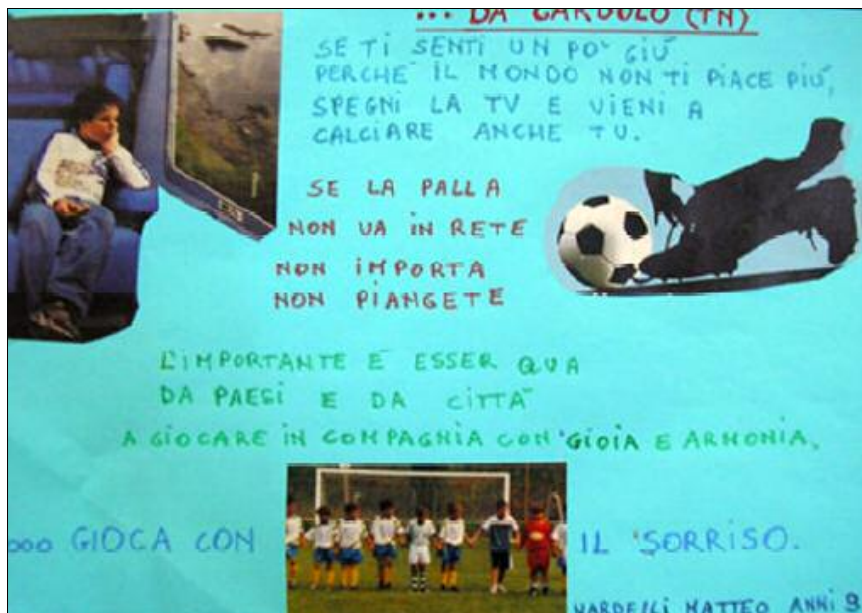 ... DA GARDOLO (TN)
SE TI SENTI UN PO' GIÙ
PERCHÈ IL MONDO NON TI PIACE PIÙ,
SPEGNI LA TV E VIENI A
CALCIARE ANCHE TU.
SE LA PALLA
NON VA IN RETE
NON IMPORTA
NON PIANGETE
L'IMPORTANTE È ESSER QUA
DA PAESI E DA CITTÀ
A GIOCARE IN COMPAGNIA CON GIOIA E ARMONIA.
ooo GIOCA CON IL SORRISO.
NARDELLI MATTEO ANNI 9